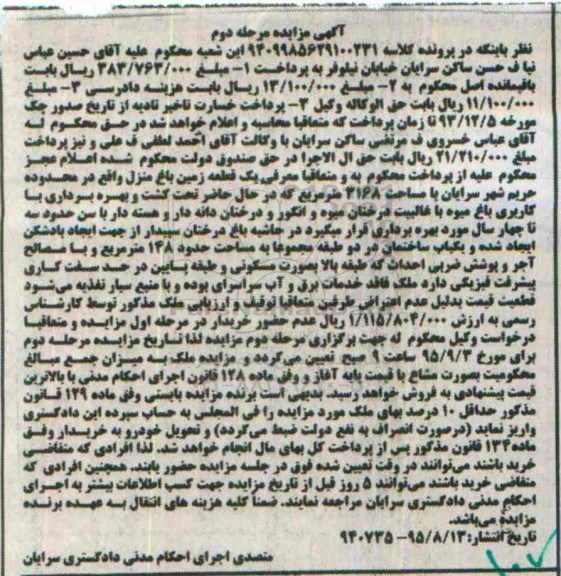 آگهی مزایده مرحله دوم
نظر باینکه در پرونده کلاسه ۹۴۰۹۹۸۵۶۲۹۱۰۰۲۳۱ این شعبه محکوم علیه آقای حسین عباس
نیا ف حسن ساکن سرایان خیابان نیلوفر به پرداخت ۱- مبلغ ۳۸۳/۷۶۳/۰۰۰ ریال بابت
باقیمانده اصل محکوم به ۲- مبلغ ۱۳/۱۰۰/۰۰۰ ریال بابت هزینه دادرسی ۳- مبلغ
۱۱/۱۰۰/۰۰۰ ریال بابت حق الوکاله وکیل ۳- پرداخت خسارت تاخیر تادیه از تاریخ صدور چک
مورخه ۹۳/۱۲/۵ تا زمان پرداخت که متعاقبا محاسبه و اعلام خواهد شد در حق محکوم له
آقای عباس خسروی ف مرتضی ساکن سرایان با وکالت آقای احمد لطفی ف علی و نیز پرداخت
مبلغ ۲۱/۲۱۰/۰۰۰ ریال بابت حق ال الاجرا در حق صندوق دولت محکوم شده اعلام عجز
محکوم علیه از پرداخت محکوم به و متعاقبا معرفی یک قطعه زمین باغ منزل واقع در محدوده
حریم شهر سرایان با مساحت ۳۱۶۸ مترمربع که در حال حاضر تحت کشت و بهره برداری با
کاربری باغ میوه با غالبیت درختان میوه و انگور و درختان دانه دار و هسته دار با سن حدود سه
تا چهار سال مورد بهره برداری قرار میگیرد در حاشیه باغ درختان سپیدار از جهت ایجاد بادشکن
ایجاد شده و یکباب ساختمان در دو طبقه مجموعا به مساحت حدود ۱۴۸ مترمربع و با مصالح
آجر و پوشش ضربی احداث که طبقه بالا بصورت مسکونی و طبقه پایین در حد سفت کاری
پیشرفت فیزیکی دارد ملک فاقد خدمات برق و آب سراسرای بوده و با منبع سیار تغذیه می‌شود
قطعیت قیمت بدلیل عدم اعتراض طرفین متعاقبا توقیف و ارزیابی ملک مذکور توسط کارشناس
رسمی به ارزش ۱/۱۱۵/۸۰۴/۰۰۰ ریال عدم حضور خریدار در مرحله اول مزایده و متعاقبا
درخواست وکیل محکوم له جهت برگزاری مرحله دوم مزایده لذا تاریخ مزایده مرحله دوم
برای مورخ ۹۵/۹/۳ ساعت ۹ صبح تعیین می‌گردد و مزایده ملک به میزان جمع مبالغ
محکومیت بصورت مشاع با قیمت پایه آغاز و وفق ماده ۱۲۸ قانون اجرای احکام مدنی با بالاترین
قیمت پیشنهادی به فروش خواهد رسید. بدیهی است برنده مزایده بایستی وفق ماده ۱۲۹ قانون
مذکور حداقل ۱۰ درصد بهای ملک مورد مزایده را فی المجلس به حساب سپرده این دادگستری
واریز نماید (درصورت انصراف به نفع دولت ضبط می‌گردد) و تحویل خودرو به خریدار وفق
ماده ۱۳۳ قانون مذکور پس از پرداخت کل بهای مال انجام خواهد شد. لذا افرادی که متقاضی
خرید باشند می‌توانند در وقت تعیین شده فوق در جلسه مزایده حضور یابند. همچنین افرادی که
متقاضی خرید باشند می‌توانند ۵ روز قبل از تاریخ مزایده جهت کسب اطلاعات بیشتر به اجرای
احکام مدنی دادگستری سرایان مراجعه نمایند. ضمناً کلیه هزینه های انتقال به عهده برنده
مزایده می‌باشد.
تاریخ انتشار: ۹۵/۸/۱۳- ۹۴۰۷۳۵
متصدی اجرای احکام مدنی دادگستری سرایان